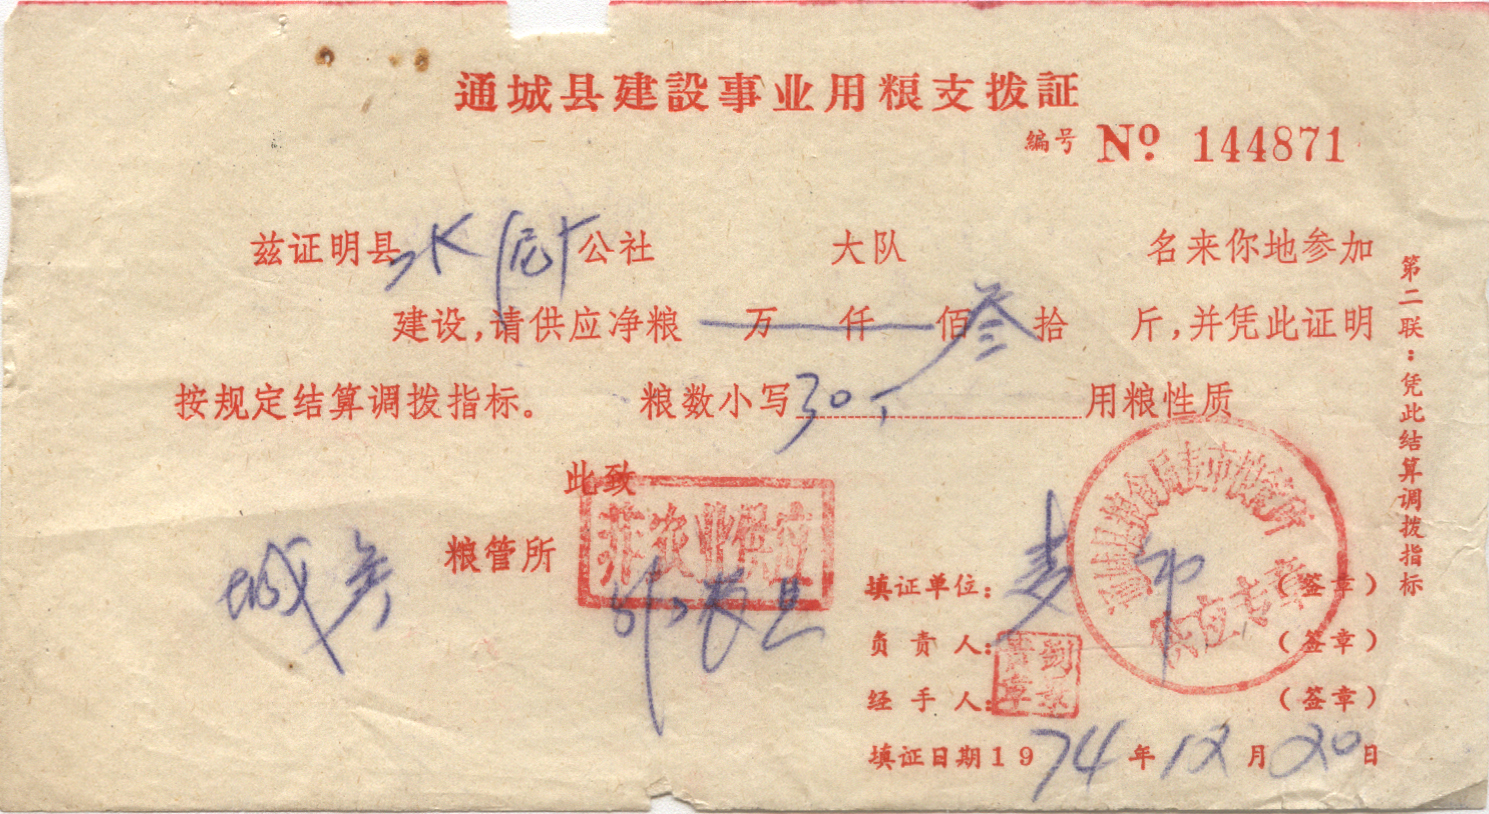 通城县建設事业用粮支拨証
编号 Nº 144871
兹证明县水 公社 大队 名来你地参加
建设,请供应净粮 万 仟 佰叁拾 斤,并凭此证明
按规定结算调拨指标。 粮数小写30斤 用粮性质
此致
非农业供应
城关 粮管所
填证单位: 麦市 (签章)
负责人: (签章)
经手人: (签章)
填证日期1974年12月20日
通城县粮食局麦市粮管所
供应专章
第二联:凭此结算调拨指标